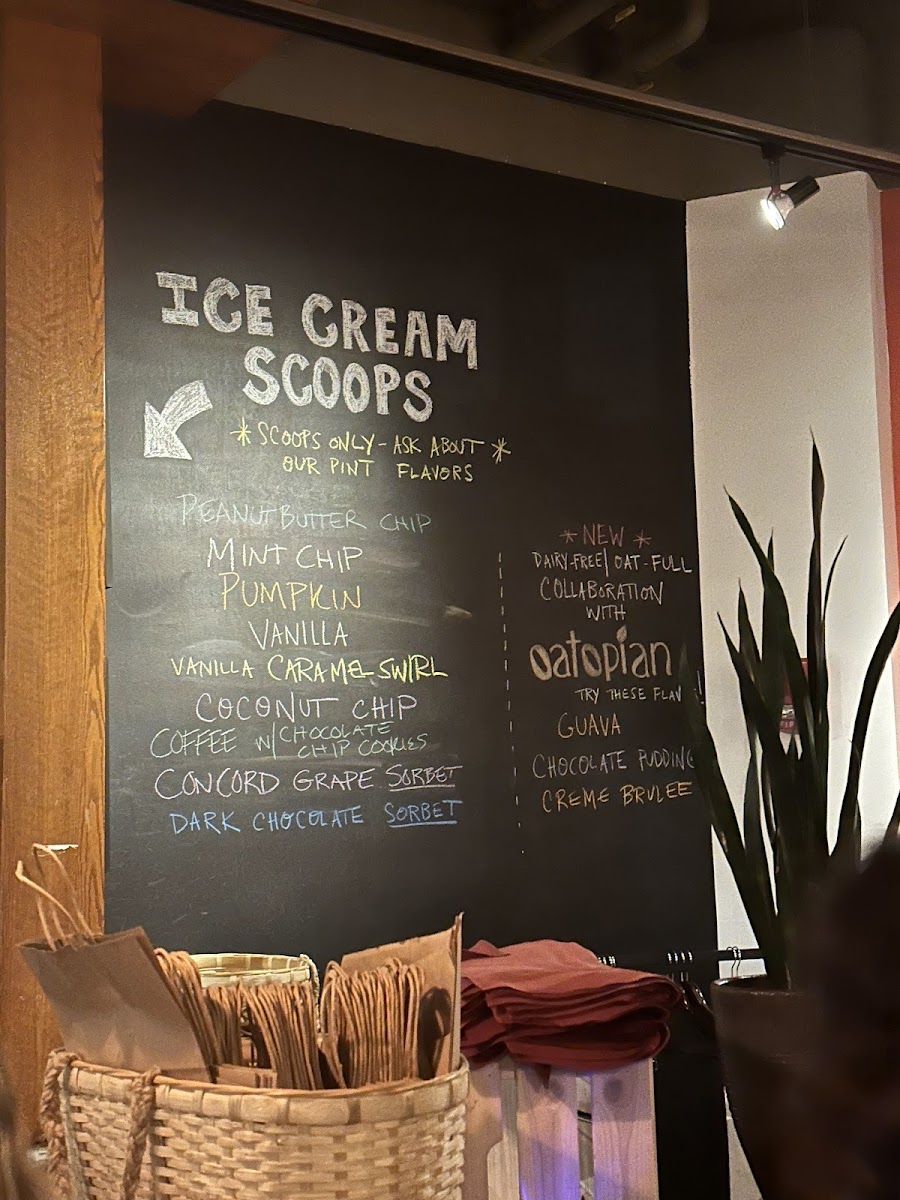 ICE CREAM
SCOOPS
* SCOOPS ONLY - ASK ABOUT *
OUR PINT FLAVORS
PEANUTBUTTER CHIP
MINT CHIP
PUMPKIN
VANILLA
VANILLA CARAMEL SWIRL
COCONUT CHIP
COFFEE W/ CHOCOLATE
CHIP COOKIES
CONCORD GRAPE SORBET
DARK CHOCOLATE SORBET
* NEW *
DAIRY-FREE/OAT-FULL
COLLABORATION
WITH
oatopian
TRY THESE FLAV
GUAVA
CHOCOLATE PUDDING
CREME BRULEE